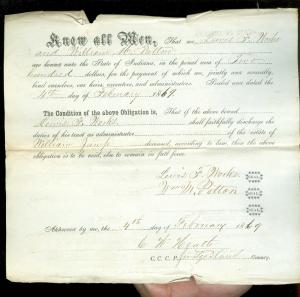 Know all Men, That we Lewis F. Works
and William M. Patton
are bound unto the State of Indiana, in the penal sum of Two
hundred dollars, for the payment of which we, jointly and severally,
bind ourselves, our heirs, executors, and administrators. Sealed and dated the
4th day of February 1869
The Condition of the above Obligation is, That if the above bound
Lewis F. Works shall faithfully discharge the
duties of his trust as administrator of the estate of
William deceased, according to law, then the above
obligation is to be void, else to remain in full force.
Lewis F. Works SEAL
Wm M. Patton SEAL
SEAL
SEAL
Approved by me, the 4th day of February 1869
C. W.
C. C. C. P. County.